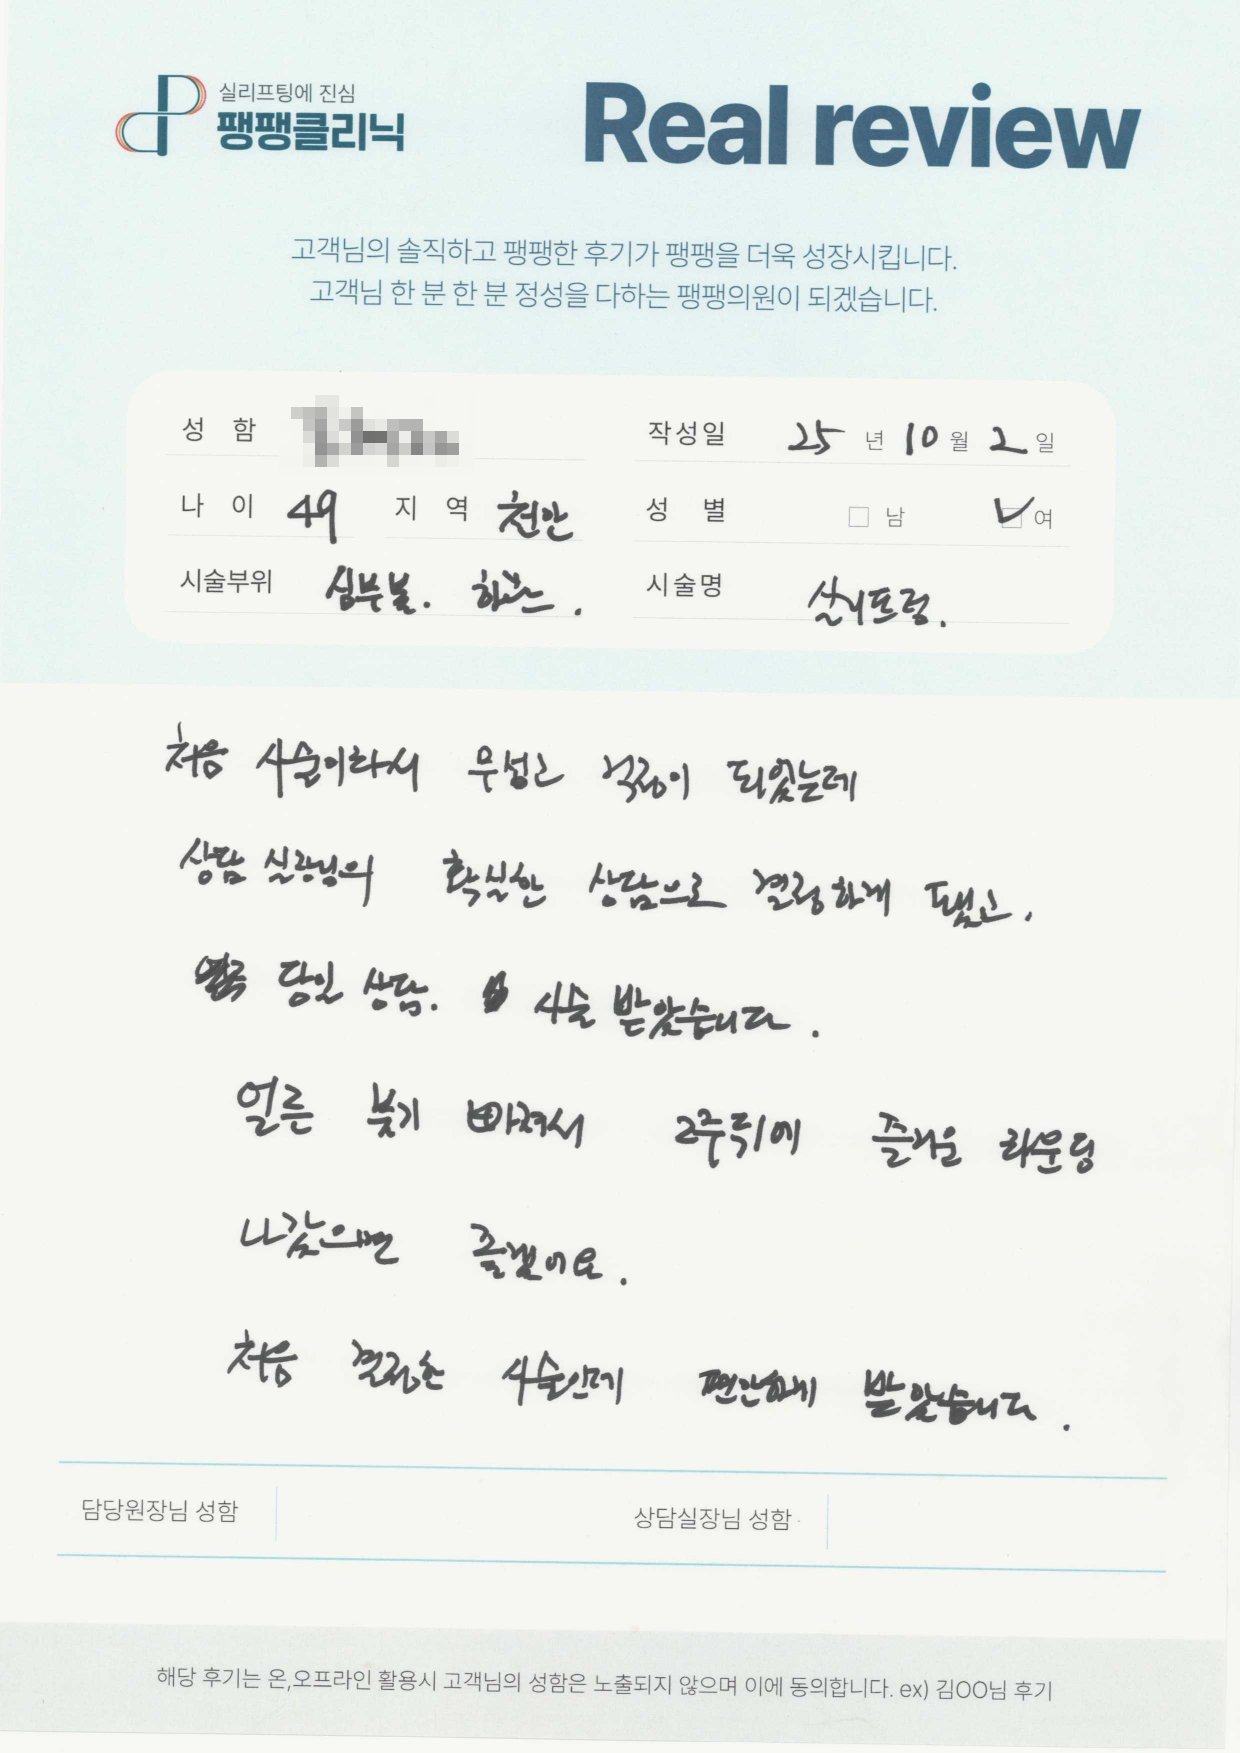 실리프팅에 진심
팽팽클리닉
Real review
고객님의 솔직하고 팽팽한 후기가 팽팽을 더욱 성장시킵니다.
고객님 한 분 한 분 정성을 다하는 팽팽의원이 되겠습니다.
성 함 작성일 25 년 10 월 2 일
나 이 49 지 역 천안 성 별 남 여
시술부위 심부볼. 시술명 실리프팅.
처음 시술이라서 무섭고 걱정이 되었는데
상담 실장님의 확실한 상담으로 결정하게 됐고.
당일 상담. 시술 받았습니다.
얼른 붓기 빠져서 2주뒤에 즐거운 라운딩
나갔으면 좋겠어요.
처음 결정한 시술인데 편안하게 받았습니다.
담당원장님 성함 상담실장님 성함
해당 후기는 온,오프라인 활용시 고객님의 성함은 노출되지 않으며 이에 동의합니다. ex) 김OO님 후기